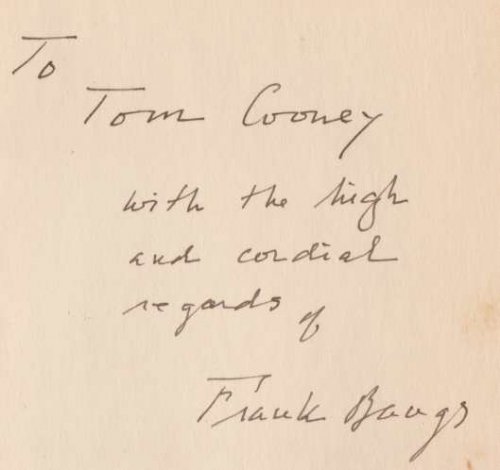 To
Tom Cooney
with the high
and cordial
regards of
Frank Bangs